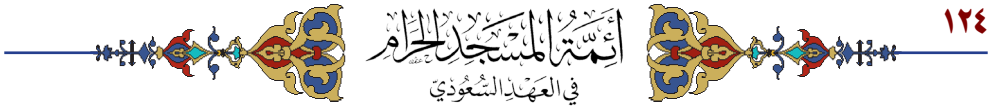 ١٢٤
أَئِمَّةُ الْمَسْجِدِ الْحَرَامِ
فِي الْعَهْدِ السُّعُودِيِّ